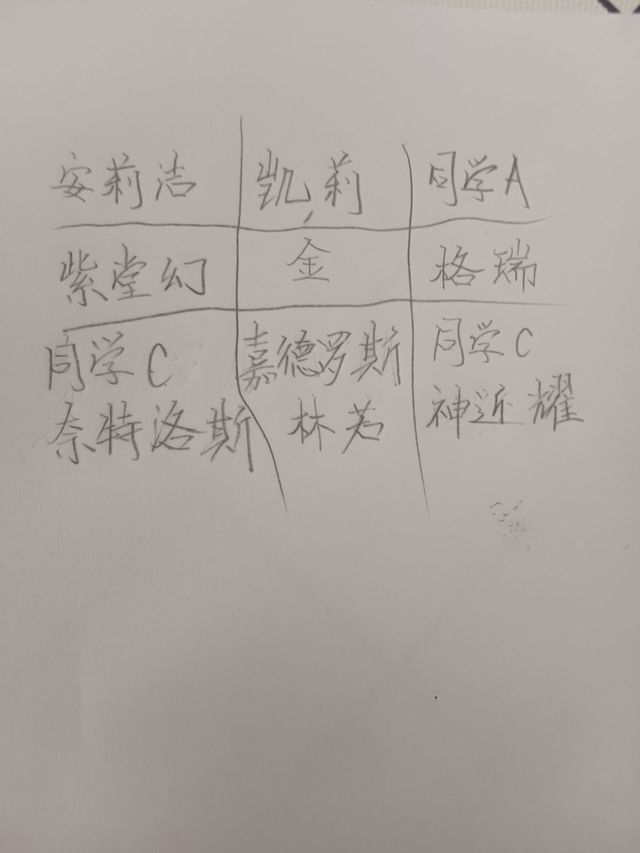 安莉洁 凯莉 同学A
紫堂幻 金 格瑞
同学C 嘉德罗斯 同学C
奈特洛斯 林若 神近耀